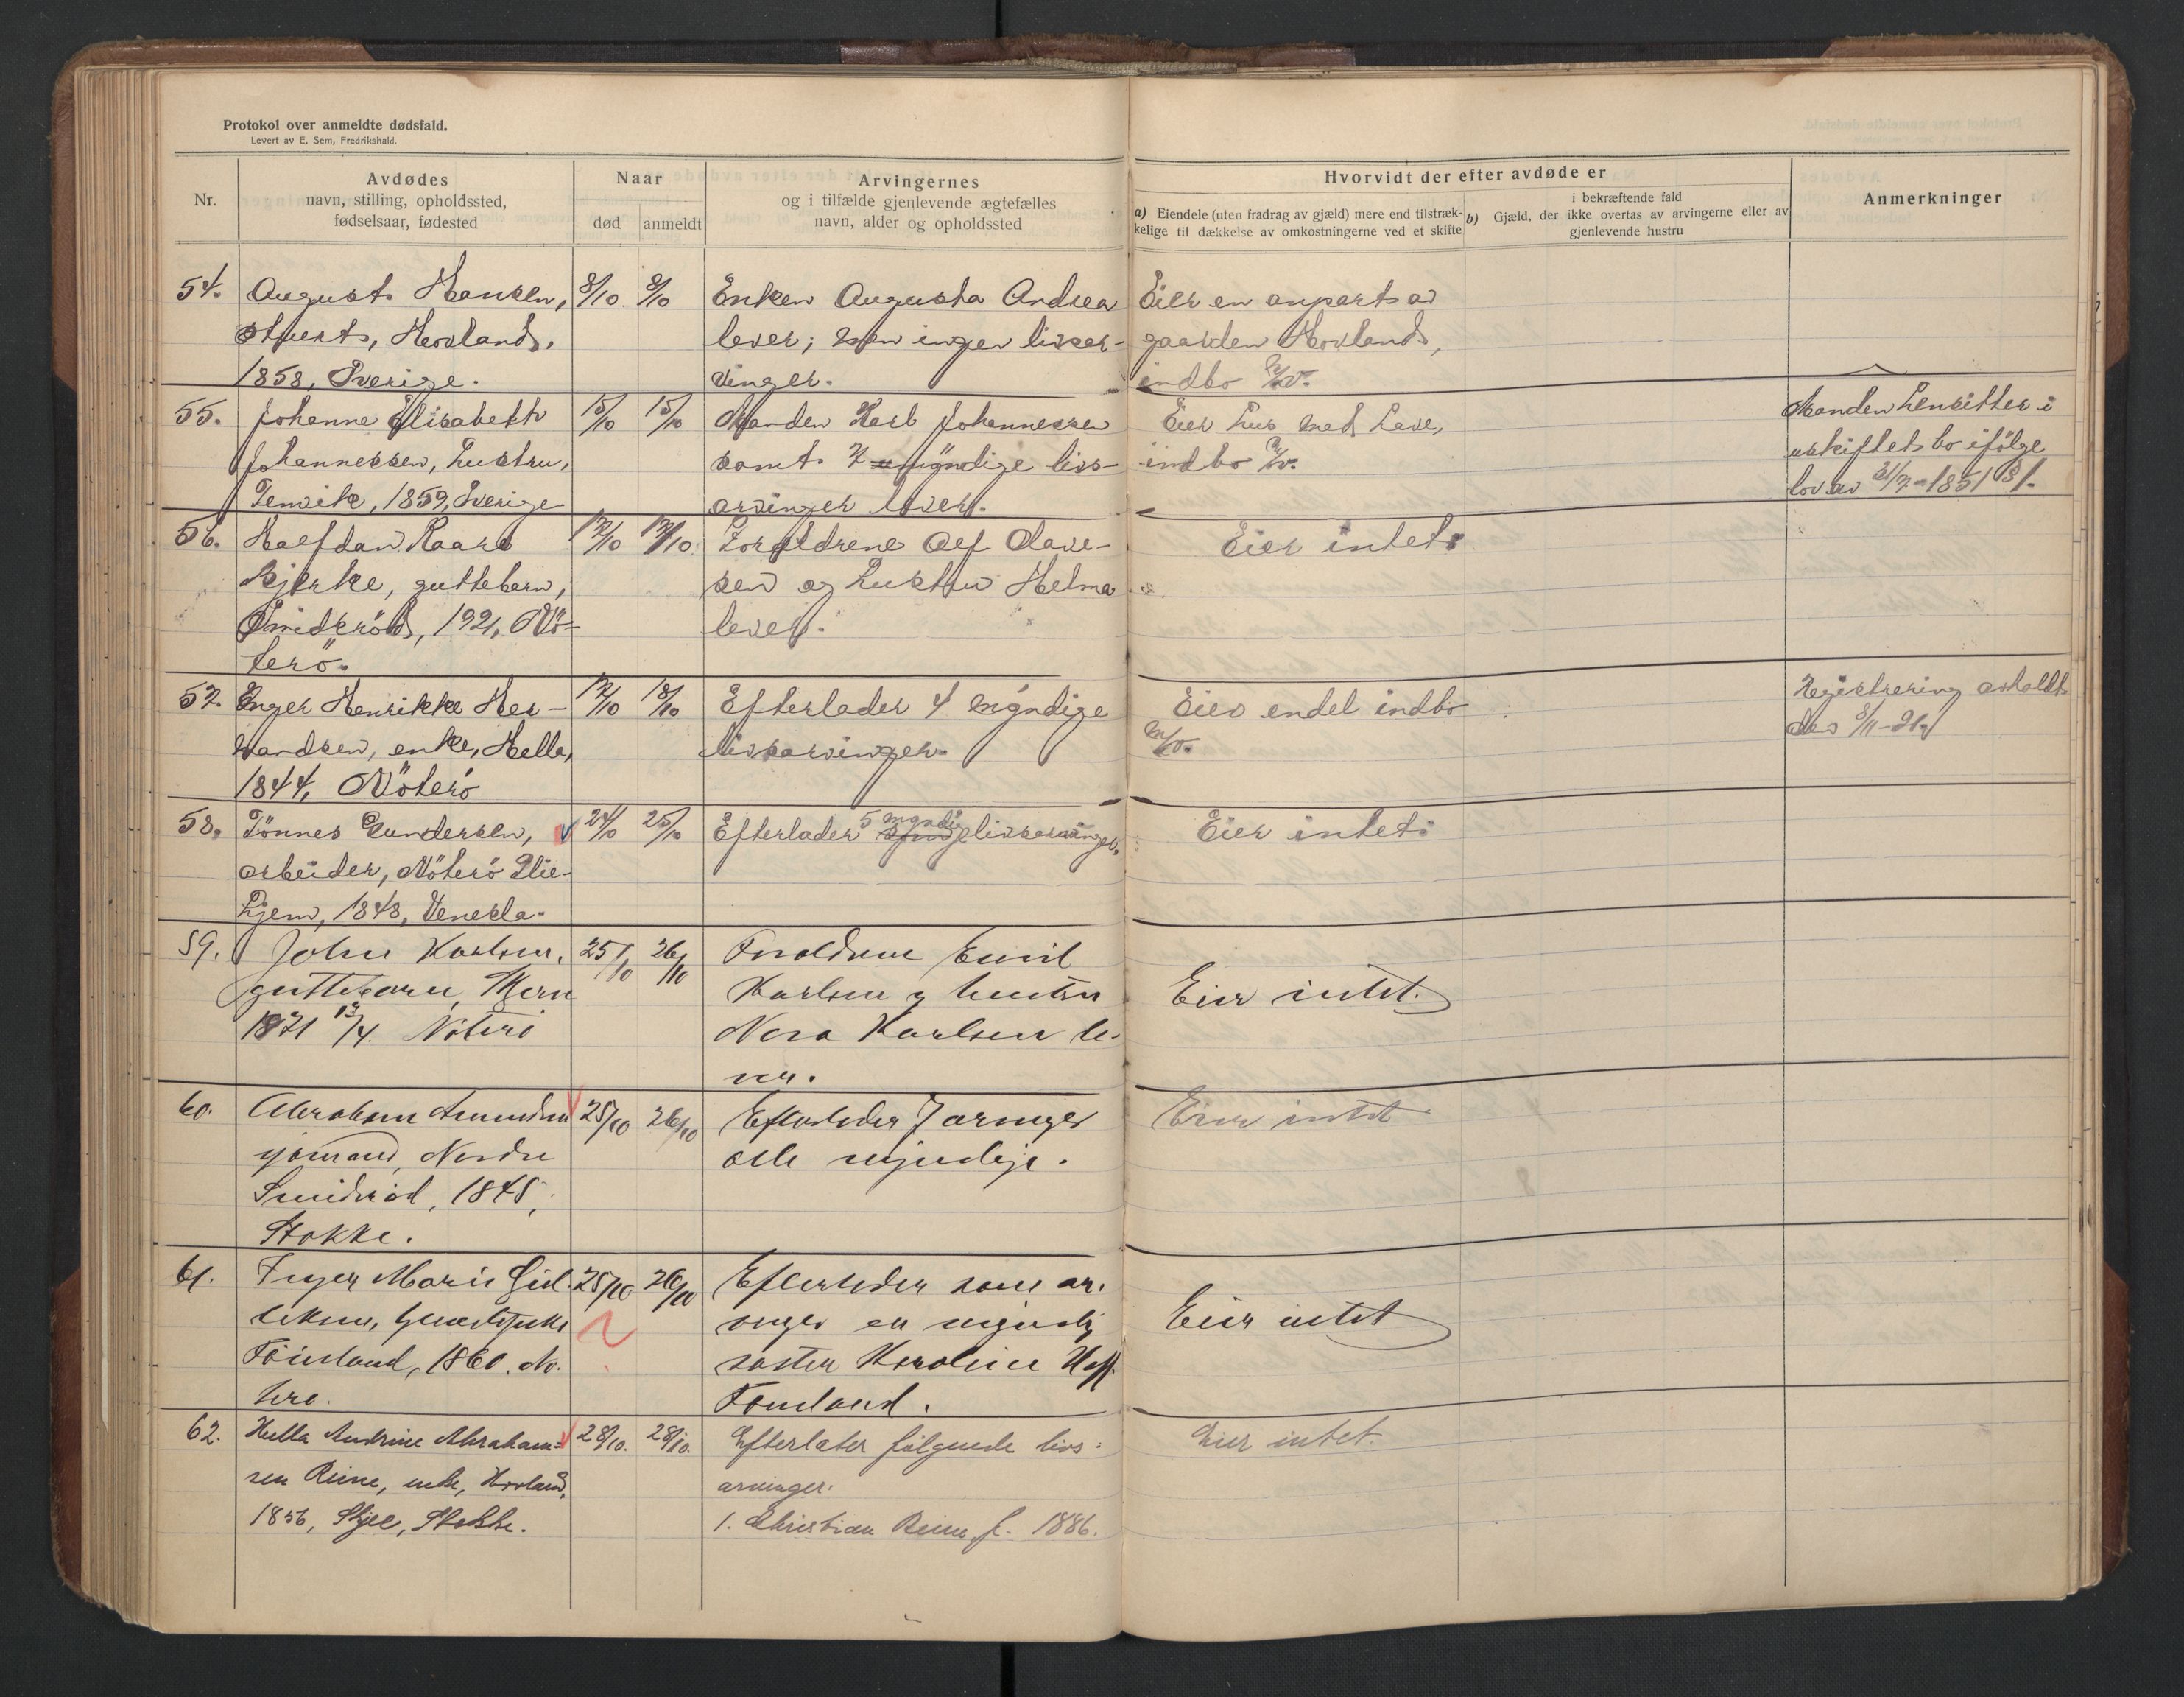 Protokol over anmeldte dødsfald.
Levert av E. Sem, Fredrikshald.
Nr.
Avdødes
navn, stilling, opholdssted,
fødselsaar, fødested
Naar
død
anmeldt
Arvingernes
og i tilfælde gjenlevende ægtefælles
navn, alder og opholdssted
Hvorvidt der efter avdøde er
a) Eiendele (uten fradrag av gjæld) mere end tilstræk-
kelige til dækkelse av omkostningerne ved et skifte
i bekræftende fald
b) Gjæld, der ikke overtas av arvingerne eller av
gjenlevende hustru
Anmerkninger
54. August Hansen, 8/10 8/10 Enken Augusta Andrea Eier en anpart av
Hovland, lever; men ingen livsar- gaarden Hovland,
1858, Sverige. vinger. indbo m/v.
55. Johanne Elisabeth 15/10 15/10 Manden Karl Johannessen Eier hus med have, Manden hensitter i
Johannessen, hustru, samt 7 myndige livs- indbo m/v. uskiftet bo ifølge
Tenvik, 1859, Sverige arvinger lever. lov av 31/7-1851 § 1.
56. Halfdan Kaare 17/10 17/10 Forældrene Alf Olave- Eier intet.
Bjerke, guttebarn, sen og hustru Helma
Smidsrød, 1921, Nö- lever.
terö.
57. Inger Henrikke Her- 17/10 18/10 Efterlader 4 myndige Eier endel indbo Registrering avholdt
mandsen, enke, Hella, livsarvinger. m/v. den 8/11-21.
1844, Nöterö
58. Tönnes Gundersen, 24/10 25/10 Efterlader 5 myndige livsarvinger. Eier intet.
arbeider, Nöterö Plie-
hjem, 1848, Venesla.
59. John Karlsen, 25/10 26/10 Forældrene Emil
guttebarn, Karlsen g hustru Eier intet.
1921 13/4. Nöterö Nora Karlsen le-
ver.
60. Abraham Amundsen 25/10 26/10 Efterlader 7 arvinger Eier intet
sjömand, Nordre alle myndige.
Smidsröd, 1845,
Stokke.
61. Inger Marie 25/10 26/10 Efterlader som ar-
vinger en myndig Eier intet
Föinland, 1860. Nö- söster Karoline
terö. Föinland.
62. Hella Andrine Abraham- 28/10. 28/10. Efterlater følgende livs- Eier intet.
sen Reine, enke, Hovland, arvinger.
1856, Skjee, Stokke. 1. Christian Reine f. 1886.